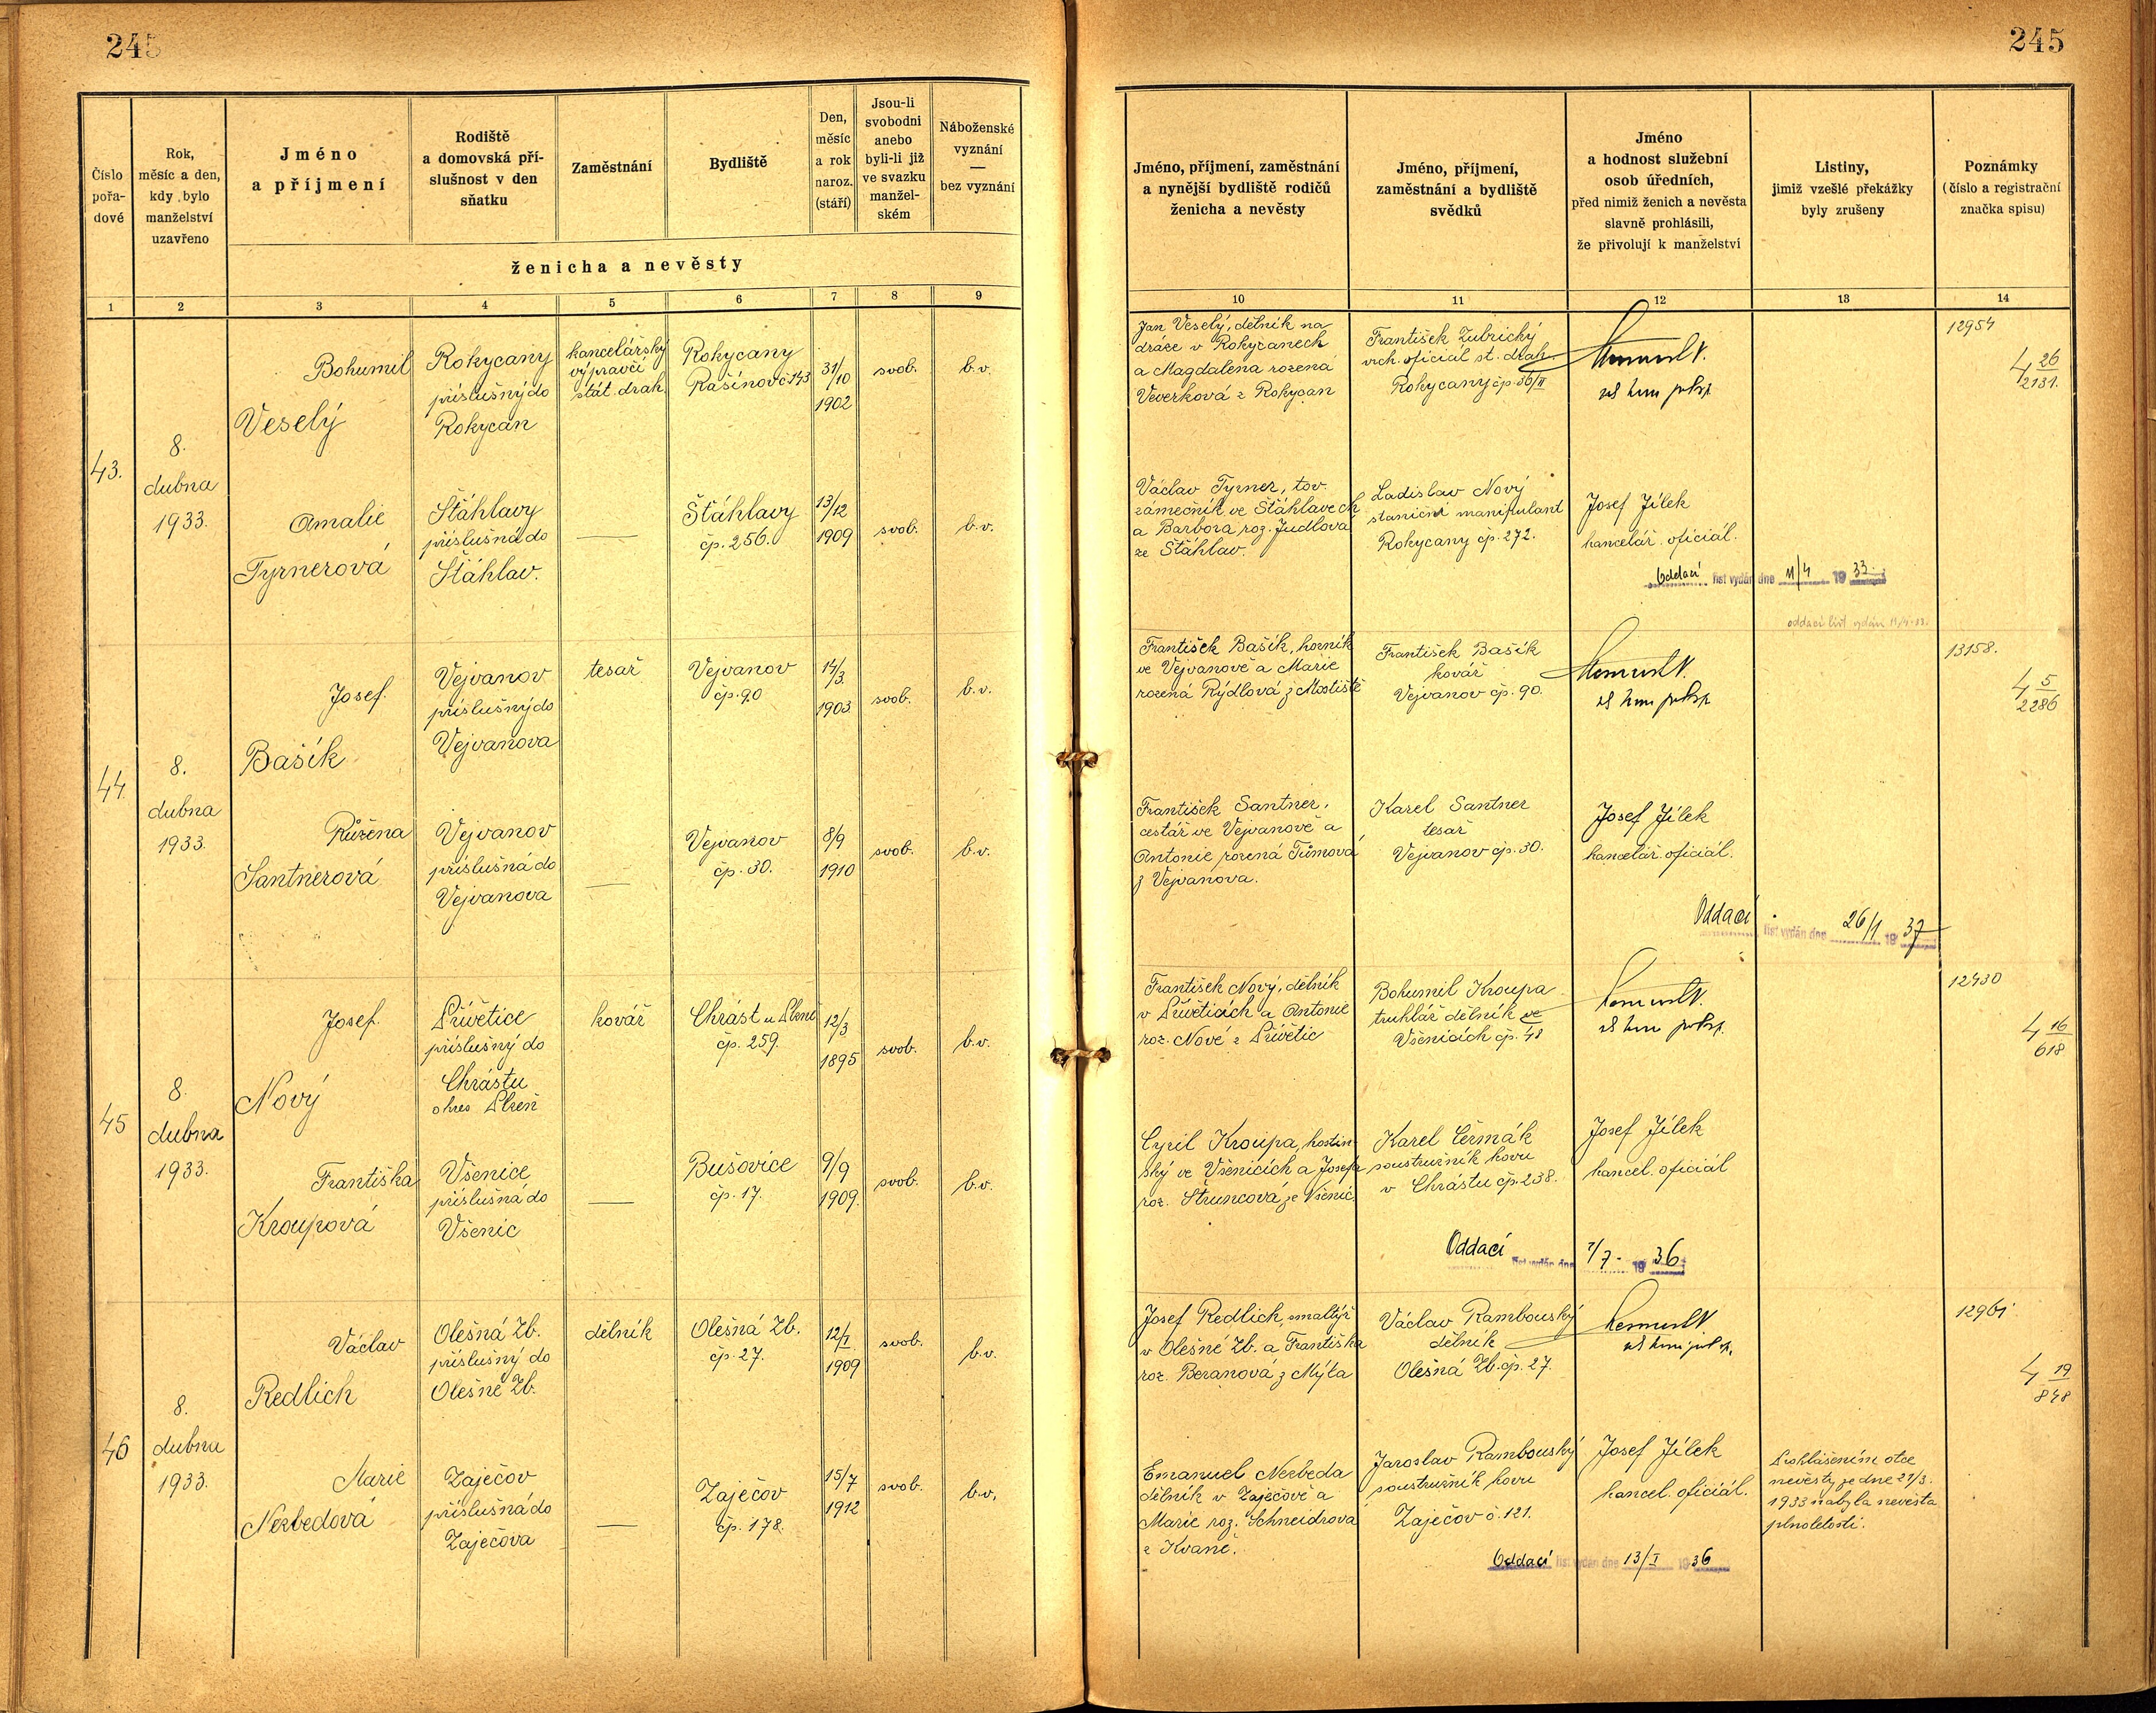 245
Číslo
pořa-
dové
Rok,
měsíc a den,
kdy bylo
manželství
uzavřeno
Jméno
a příjmení
Rodiště
a domovská pří-
slušnost v den
sňatku
Zaměstnání
Bydliště
Den,
měsíc
a rok
naroz.
(stáří)
Jsou-li
svobodni
anebo
byli-li již
ve svazku
manžel-
ském
Náboženské
vyznání
—
bez vyznání
ženicha a nevěsty
1 2 3 4 5 6 7 8 9
43.
8.
dubna
1933.
Bohumil
Veselý
Rokycany
příslušný do
Rokycan
kancelářský
výpravčí
stát. drah
Rokycany
Rašínov č 143
31/10
1902
svob.
b.v.
Amalie
Tyrnerová
Šťáhlavy
příslušná do
Šťáhlav.
—
Šťáhlavy
čp. 256.
13/12
1909
svob.
b.v.
44.
8.
dubna
1933.
Josef
Bašík
Vejvanov
příslušný do
Vejvanova
tesař
Vejvanov
čp. 90
14/3.
1903
svob.
b.v.
Růžena
Santnerová
Vejvanov
příslušná do
Vejvanova
—
Vejvanov
čp. 30.
8/9
1910
svob.
b.v.
45
8.
dubna
1933.
Josef
Nový
Přívětice
příslušný do
Chrástu
okres Plzeň
kovář
Chrást u Plzně
čp. 259.
12/3
1895
svob.
b.v.
Františka
Kroupová
Všenice
příslušná do
Všenic
—
Bušovice
čp. 17.
9/9
1909.
svob.
b.v.
46
8.
dubna
1933.
Václav
Redlich
Olešná Zb.
příslušný do
Olešné Zb.
dělník
Olešná Zb.
čp. 27.
12/I.
1909
svob.
b.v.
Marie
Nezbedová
Zaječov
příslušná do
Zaječova
—
Zaječov
čp. 178.
15/7
1912
svob.
b.v.
245
Jméno, příjmení, zaměstnání
a nynější bydliště rodičů
ženicha a nevěsty
Jméno, příjmení,
zaměstnání a bydliště
svědků
Jméno
a hodnost služební
osob úředních,
před nimiž ženich a nevěsta
slavně prohlásili,
že přivolují k manželství
Listiny,
jimiž vzešlé překážky
byly zrušeny
Poznámky
(číslo a registrační
značka spisu)
10 11 12 13 14
Jan Veselý, dělník na
dráze v Rokycanech
a Magdalena rozená
Veverková z Rokycan
František Zubrický
vrch. oficiál st. drah
Rokycany čp. 36/II
12954
4 26/2131.
Václav Tyrner, tov.
zámečník ve Šťáhlavech
a Barbora roz. Judlová
ze Šťáhlav.
Ladislav Nový
staniční manipulant
Rokycany čp. 272.
Josef Jílek
kancelář. oficiál.
Oddací list vydán dne 11/4 1933.
oddací list vydán 11/4-33.
František Bašík, horník
ve Vejvanově a Marie
rozená Rýdlová z Mostiště
František Bašík
kovář
Vejvanov čp. 90.
13158.
4 5/2286
František Santner,
cestář ve Vejvanově a
Antonie rozená Tůmová
z Vejvanova.
Karel Santner
tesař
Vejvanov čp. 30.
Josef Jílek
kancelář. oficiál.
Oddací list vydán dne 26/1 1937
František Nový, dělník
v Přívěticích a Antonie
roz. Nové z Přívětic
Bohumil Kroupa
truhlář dělník ve
Všenicích čp. 48
12430
4 16/618
Cyril Kroupa, hostin-
ský ve Všenicích a Josefa
roz. Štruncová ze Všenic.
Karel Čermák
soustružník kovu
v Chrástu čp. 238.
Josef Jílek
kancel. oficiál
Oddací list vydán dne 7/7 - 1936
Josef Redlich, smaltýř
v Olešné Zb. a Františka
roz. Beranová z Mýta
Václav Rambouský
dělník
Olešná Zb. čp. 27.
12961
4 19/848
Emanuel Nezbeda
dělník v Zaječově a
Marie roz. Schneidrová
z Kvaně.
Jaroslav Rambouský
soustružník kovu
Zaječov č. 121.
Josef Jílek
kancel. oficiál.
Prohlášením otce
nevěsty ze dne 21/3.
1933 nabyla nevěsta
plnoletosti.
Oddací list vydán dne 13/I 1936